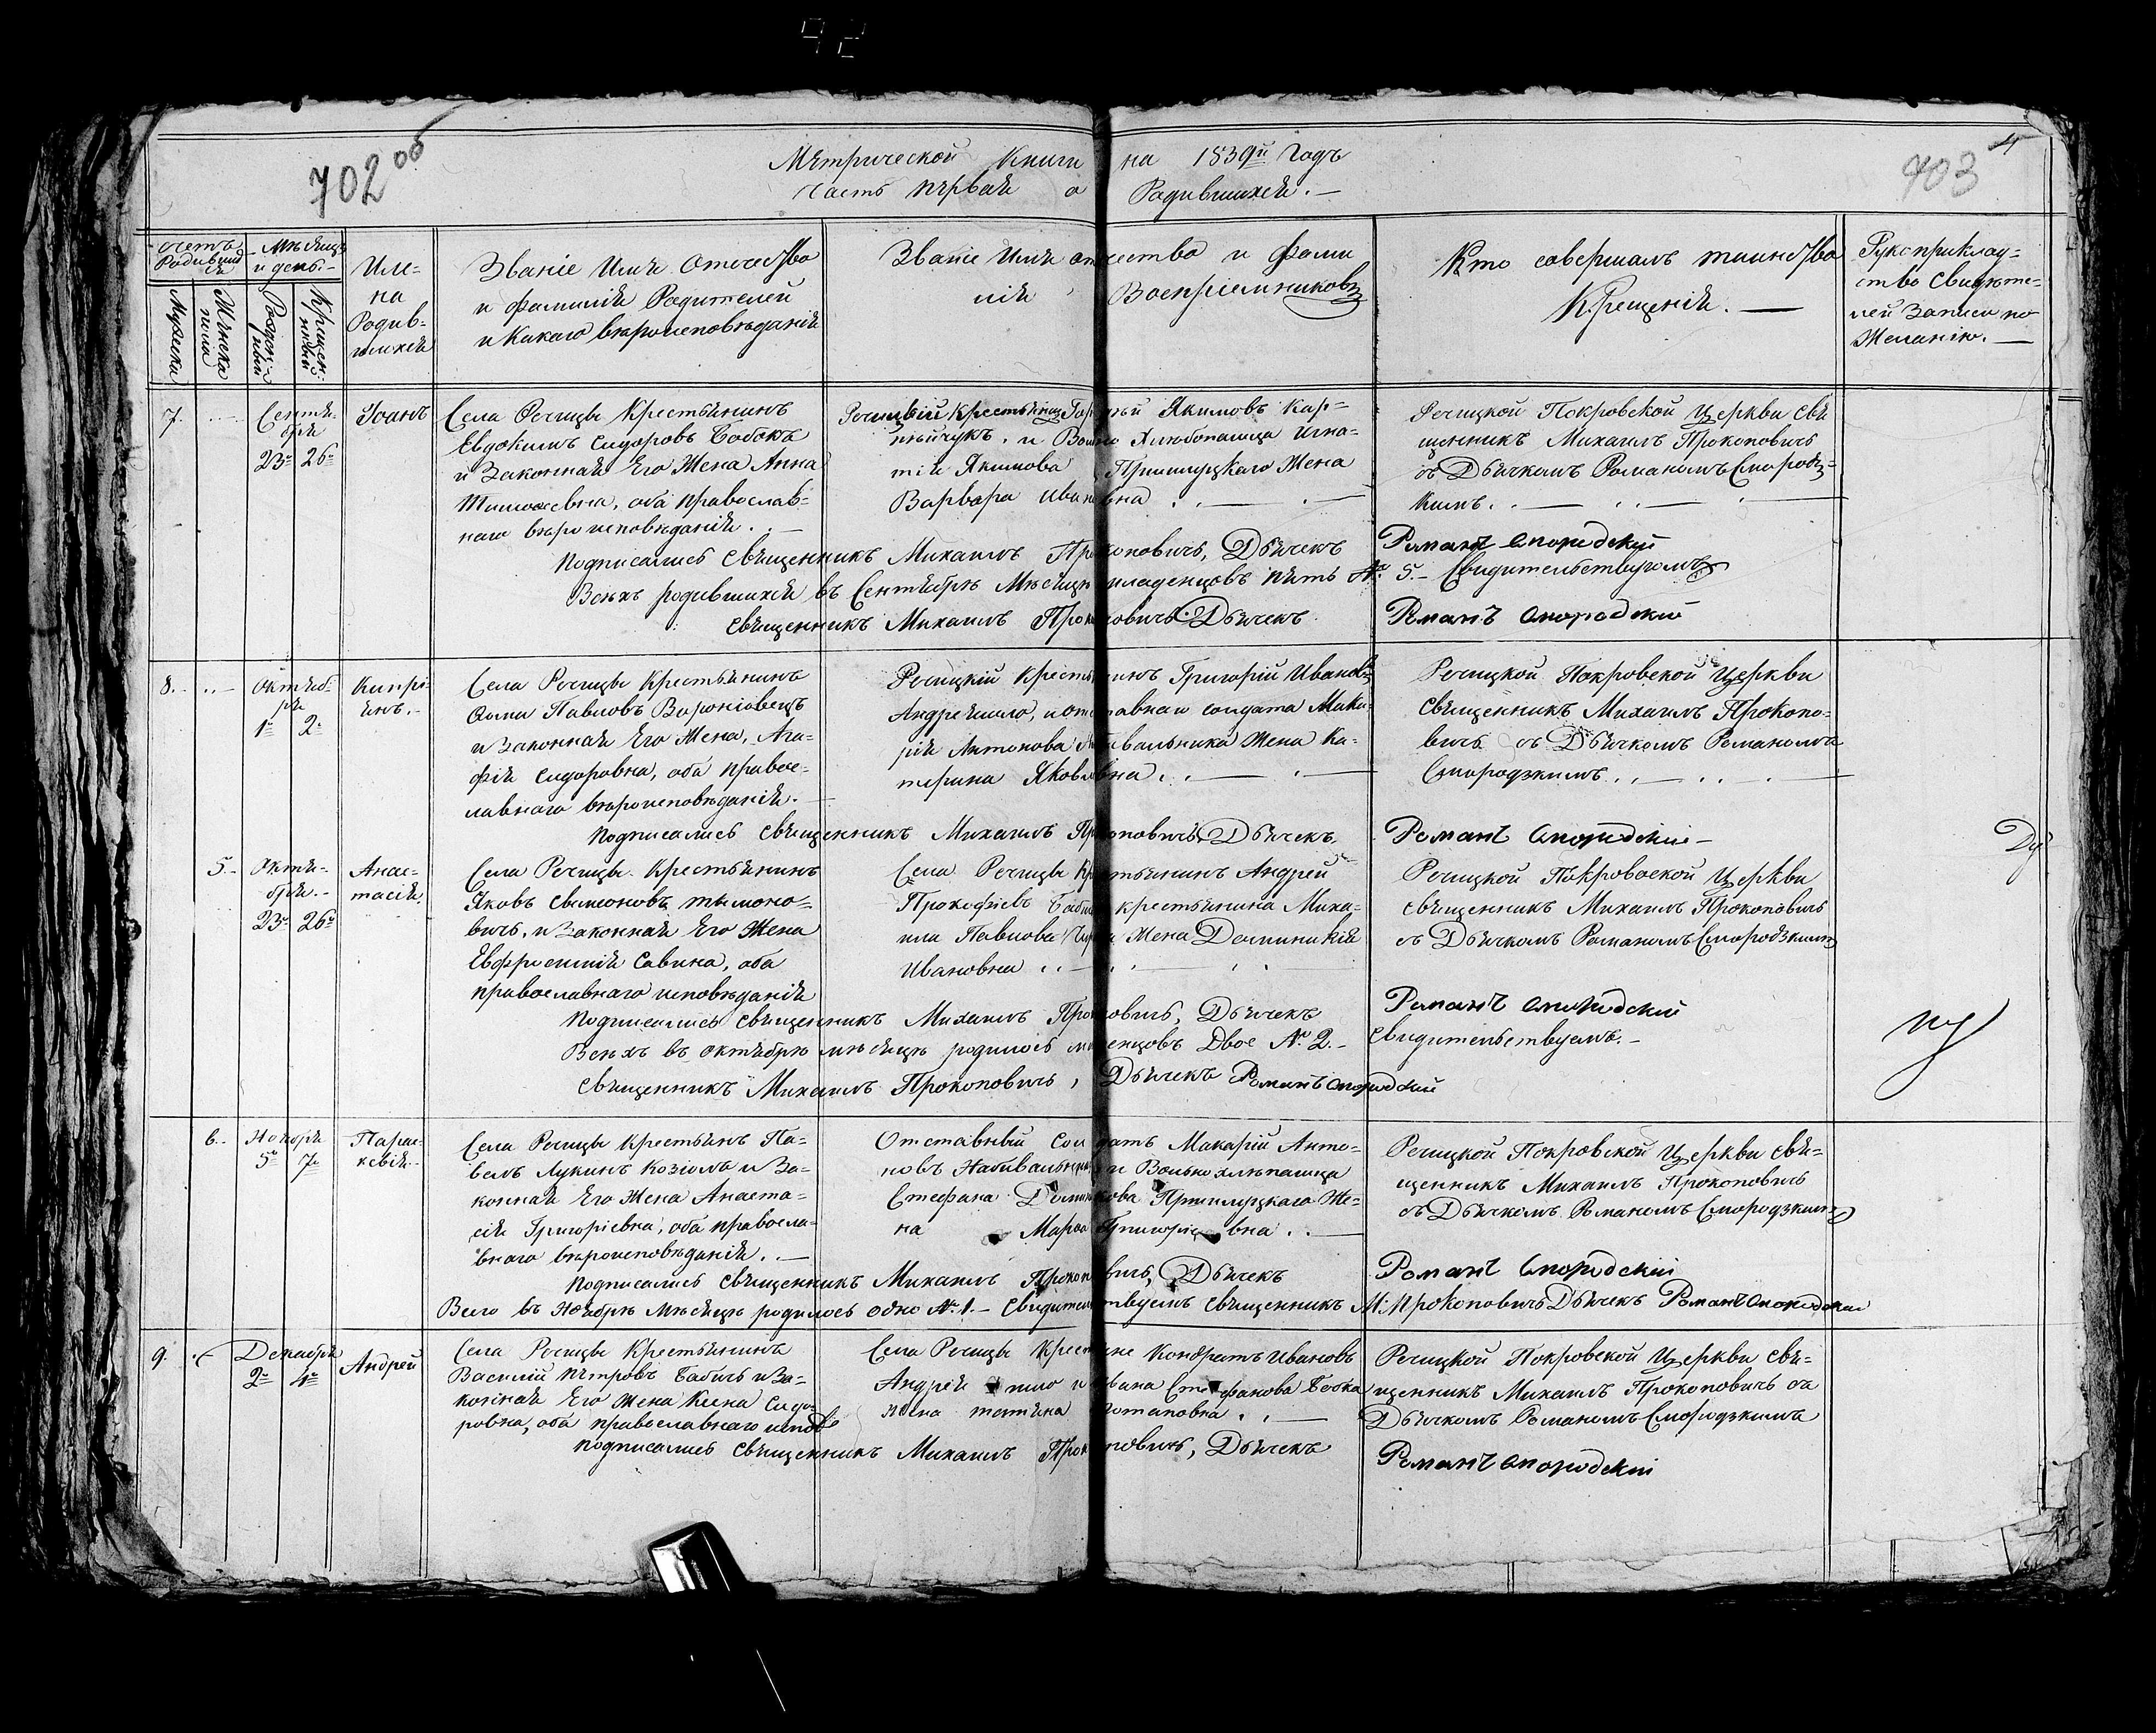 92
702 об
Метрической Книги на 1839й Годъ
403
4
Часть первая о Родившихся. —
Счетъ Родившихся
Мѣсяцъ и день. —
Мужеска
Женска пола
Рожденія
Крещенія
Име-
на
Родив-
шихся
Званіе Имя Отчество
и фамилія Родителей
и Какаго вѣроисповѣданія
Званіе Имя отчество и Фами
лія Воспріемниковъ
Кто совершалъ таинство
Крещенія. —
Рукоприклад-
ство Свидѣте-
лей Записи по
Желанію. —
7. Сентя-
бря
23. 26.
Іоанъ
Села Речицы Крестьянинъ
Евдокимъ Сидоровъ Бобокъ
и Законная Его Жена Анна
Тимоѳеевна, оба православ-
наго вѣроисповѣданія. . —
Якимовъ Кар-
Игна-
тія Якимова Жена
Варвара Ивановна . . —
Речицкой Покровской Церкви Свя
щенникъ Михаилъ Прокоповичъ
съ Дьячкомъ Романомъ Смородз-
кимъ. . — . . — . —
Подписались Священникъ Михаилъ Прокоповичъ, Дьячекъ Романъ Смородскій
Всѣхъ родившихся въ Сентябрѣ Мѣсяцѣ младенцовъ пять №. 5. — Свидительствуемъ
Священникъ Михаилъ Прокоповичъ Дьячекъ Романъ Смородскій
8. Октяб-
ря
1. 2.
Кипрі-
янъ. —
Села Речицы Крестьянинъ
Ѳома Павловъ
и Законная Его Жена, Ага-
фія Сидоровна, оба правос-
лавнаго вѣроисповѣданія. —
Речицкій Крестьянинъ Григорій Ивановъ
Андреюшло, и отставнаго солдата Мака-
рія Антонова Набивальника Жена Ка-
терина Яковлевна . . — . —
Речицкой Покровской Церкви
Священникъ Михаилъ Прокопо-
вичъ съ Дьячкомъ Романомъ
Смородзкимъ . . — . . . —
Подписались Священникъ Михаилъ Прокоповичъ Дьячекъ. Романъ Смородскій —
5. Октя-
бря. —
23. 26.
Анас-
тасія.
Села Речицы Крестьянинъ
Яковъ Симеоновъ тымоно-
вичъ, и Законная Его Жена
Евфросинія Савина, оба
православнаго исповѣданія
Села Речицы Крестьянинъ Андрей
Прокофіевъ Бабичъ крестьянина Миха-
ила Павлова Жена Доминикія
Ивановна . . —
Речицкой Покровоской Церкви
Священникъ Михаилъ Прокоповичъ
съ Дьячкомъ Романомъ Смородзкимъ
Подписались Священникъ Михаилъ Прокоповичъ, Дьячекъ Романъ Смородскій
Всѣхъ въ октябрѣ мѣсяцѣ родилось младенцовъ Двое №. 2. — Свидительствуемъ. —
Священникъ Михаилъ Прокоповичъ, Дьячекъ Романъ Смородскій
6. Ноября
5. 7.
Парас-
кевія. —
Села Речицы Крестьянъ Па-
велъ Лукинъ Козіолъ и За-
конная Его Жена Анаста-
сія Григоріевна, оба правосла-
внаго вѣроисповѣданія. . —
Отставный Солдатъ Макарій Анто-
новъ Набивальникъ и
Стефана Жe-
на Марѳа Григоріевна . . —
Речицкой Покровской Церкви свя-
щенникъ Михаилъ Прокоповичъ
съ Дьячкомъ Романомъ Смородзкимъ
Подписались Священникъ Михаилъ Прокоповичъ, Дьячекъ Романъ Смородскій
Всего въ Ноябрѣ Мѣсяцѣ родилось одно №. 1. — Свидительствуемъ Священникъ М: Прокоповичъ Дьячекъ Романъ Смородскій
9. Декабря
2. 4.
Андрей
Села Речицы Крестьянинъ
Василій Петровъ Бабичъ и За-
конная Его Жена Ксенa Сидо-
ровна, оба православнаго испов
Села Речицы Крестьяне Кондратъ Ивановъ
Андреюшло и Ивана Стефанова Бобка
Жена Потаповна . . —
Речицкой Покровской Церкви свя-
щенникъ Михаилъ Прокоповичъ съ
Дьячкомъ Романомъ Смородзкимъ
Подписались Священникъ Михаилъ Прокоповичъ, Дьячекъ Романъ Смородскій